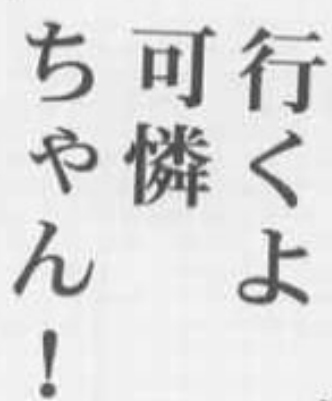 行くよ
可憐
ちゃん！